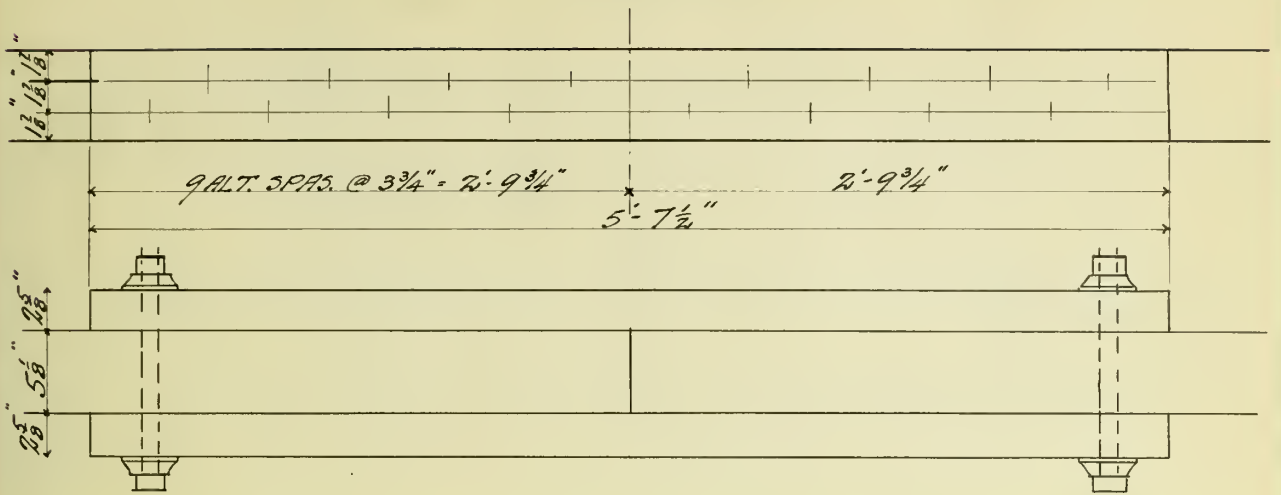 1 7/8" 1 7/8" 1 7/8"
9 ALT. SPAS. @ 3 3/4" = 2'- 9 3/4"
2'- 9 3/4"
5'- 7 1/2"
2 5/8"
5 1/8"
2 5/8"